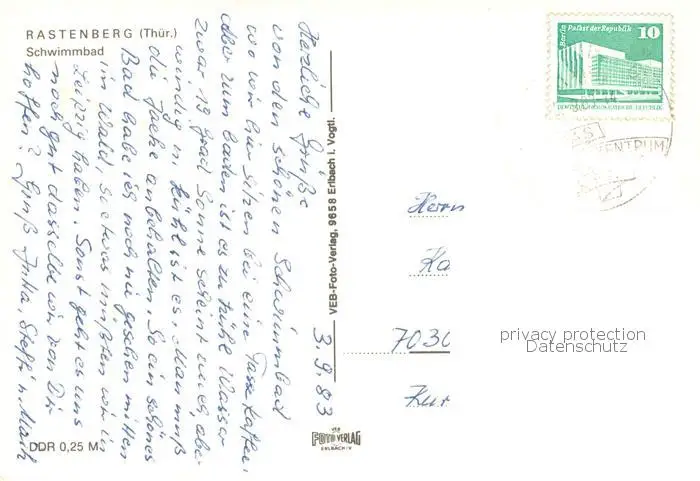 RASTENBERG (Thür.)
Schwimmbad
Herzliche Grüße
von den schönen Schwimmbad
wo wir hier sitzen bei eine Tasse Kaffee,
aber zum baden ist es zu kühl Wasser
zwar 19 Grad Sonne scheint auch, aber
windig u. kühl ist es. Man muß
die Jacke anbehalten. So ein schönes
Bad habe ich noch nie gesehen mitten
im Wald, so etwas müßten wir in
Leipzig haben. Sonst geht es uns
noch gut dasselbe wir von Dir
hoffen? Gruß Jutta, Steffi u. Maik
3.9.83
DDR 0,25 M
VEB-Foto-Verlag, 9658 Erlbach i. Vogtl.
VEB
FOTO VERLAG
ERLBACH/V
Berlin Palast der Republik
10
DEUTSCHE DEMOKRATISCHE REPUBLIK
ZENTRUM
Herrn
Ka
7030
Kur
privacy protection
Datenschutz